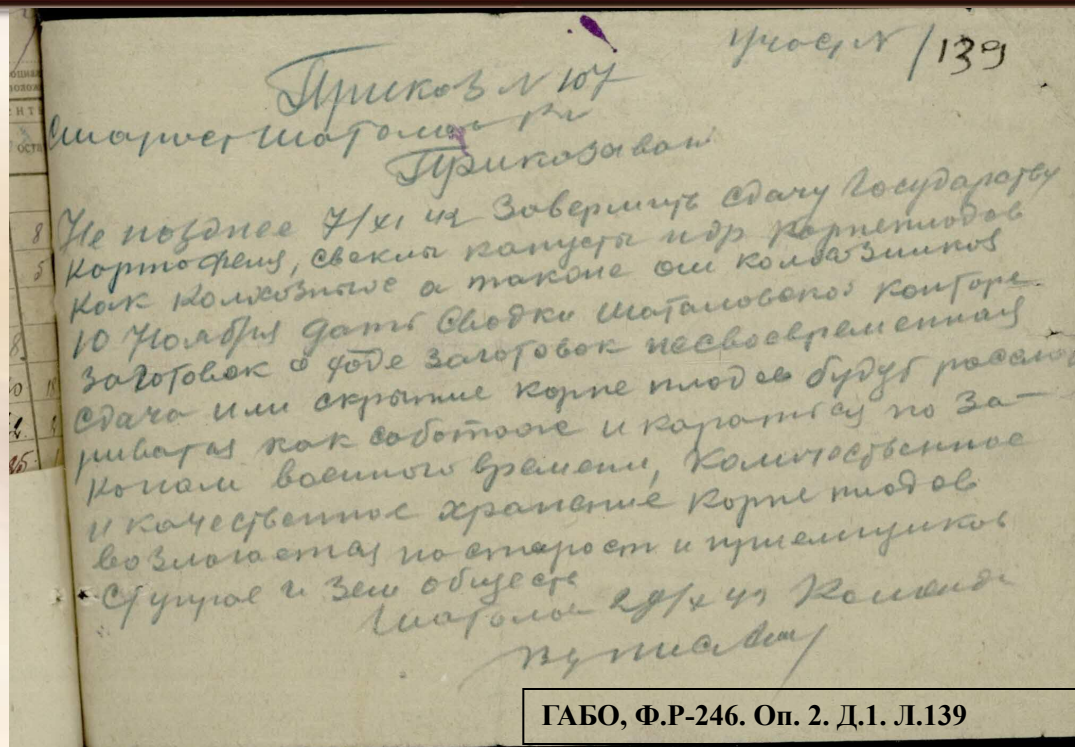 участ N /139
Приказ N 107
Старост Шатолов
Приказаваю
Не позднее 7/XI 42 Завершить Сдачу Государству
Картофеля, свеклы капусты и др Корнеплодов
Как Колхозные а также от колхозников
10 Ноября дать Сводки Шаталовской конторе
Заготовок о ходе заготовок несвоевременная
Сдача или скрытие корне плодов будут рассмат
риватся как саботаж и каратся по За-
конам военного времени, Количественное
и качественное хранение корне плодов
возлогается на старост и приемщиков
Зем обществ
Шатолов 42 Коменд
ГАБО, Ф.Р-246. Оп. 2. Д.1. Л.139